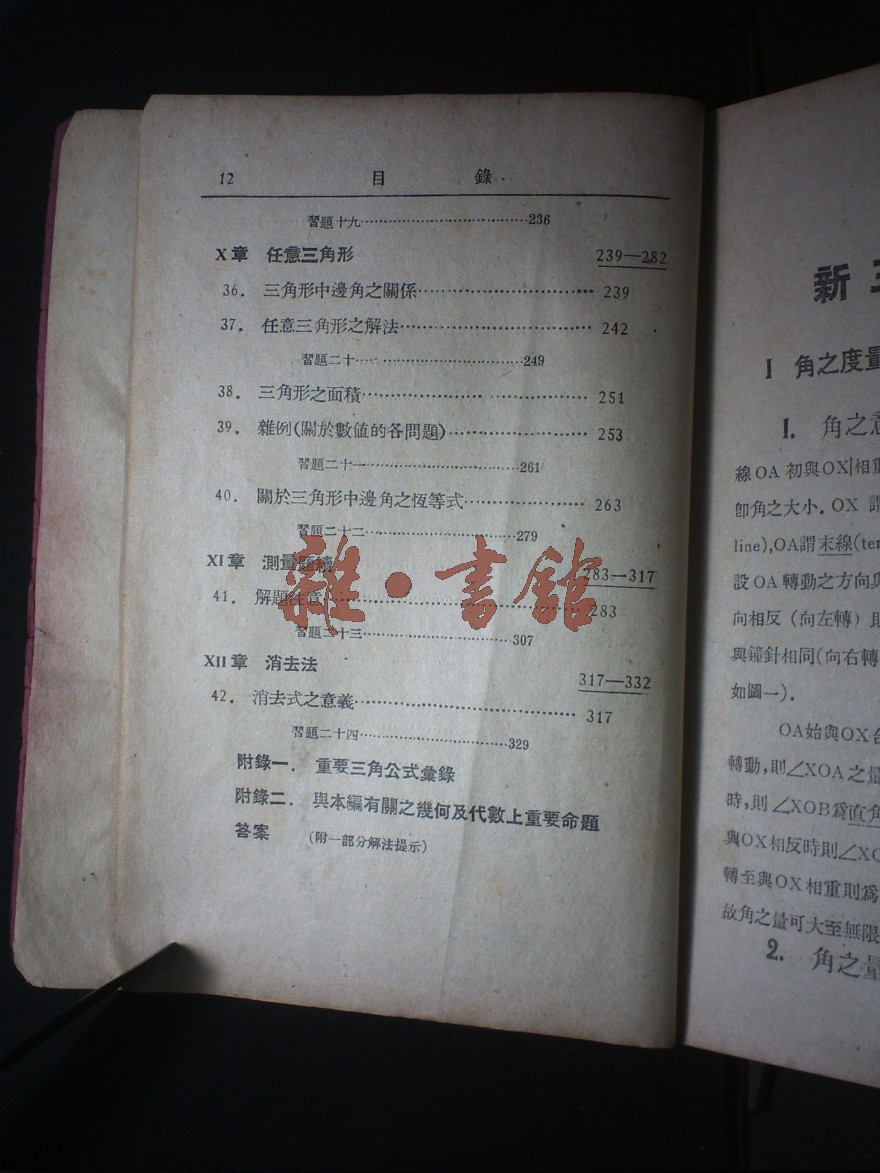 12 目 錄
習題十九……236
X章 任意三角形 239—282
36. 三角形中邊角之關係…… 239
37. 任意三角形之解法…… 242
習題二十……249
38. 三角形之面積…… 251
39. 雜例(關於數值的各問題)…… 253
習題二十一……261
40. 關於三角形中邊角之恆等式…… 263
習題二十二……279
XI章 測量題續 283—317
41. 解題注意…… 283
習題二十三……307
XII章 消去法 317—332
42. 消去式之意義…… 317
習題二十四……329
附錄一. 重要三角公式彙錄
附錄二. 與本編有關之幾何及代數上重要命題
答案 (附一部分解法提示)
雜·書館
新
I 角之度量
1. 角之意
線OA初與OX相重
卽角之大小. OX 謂
line),OA謂末線(ter
設OA轉動之方向與
向相反(向左轉)則
與鐘針相同(向右轉
如圖一).
OA始與OX合
轉動,則∠XOA之量
時,則∠XOB爲直角
與OX相反時則∠XO
轉至與OX相重則爲
故角之量可大至無限
2. 角之量